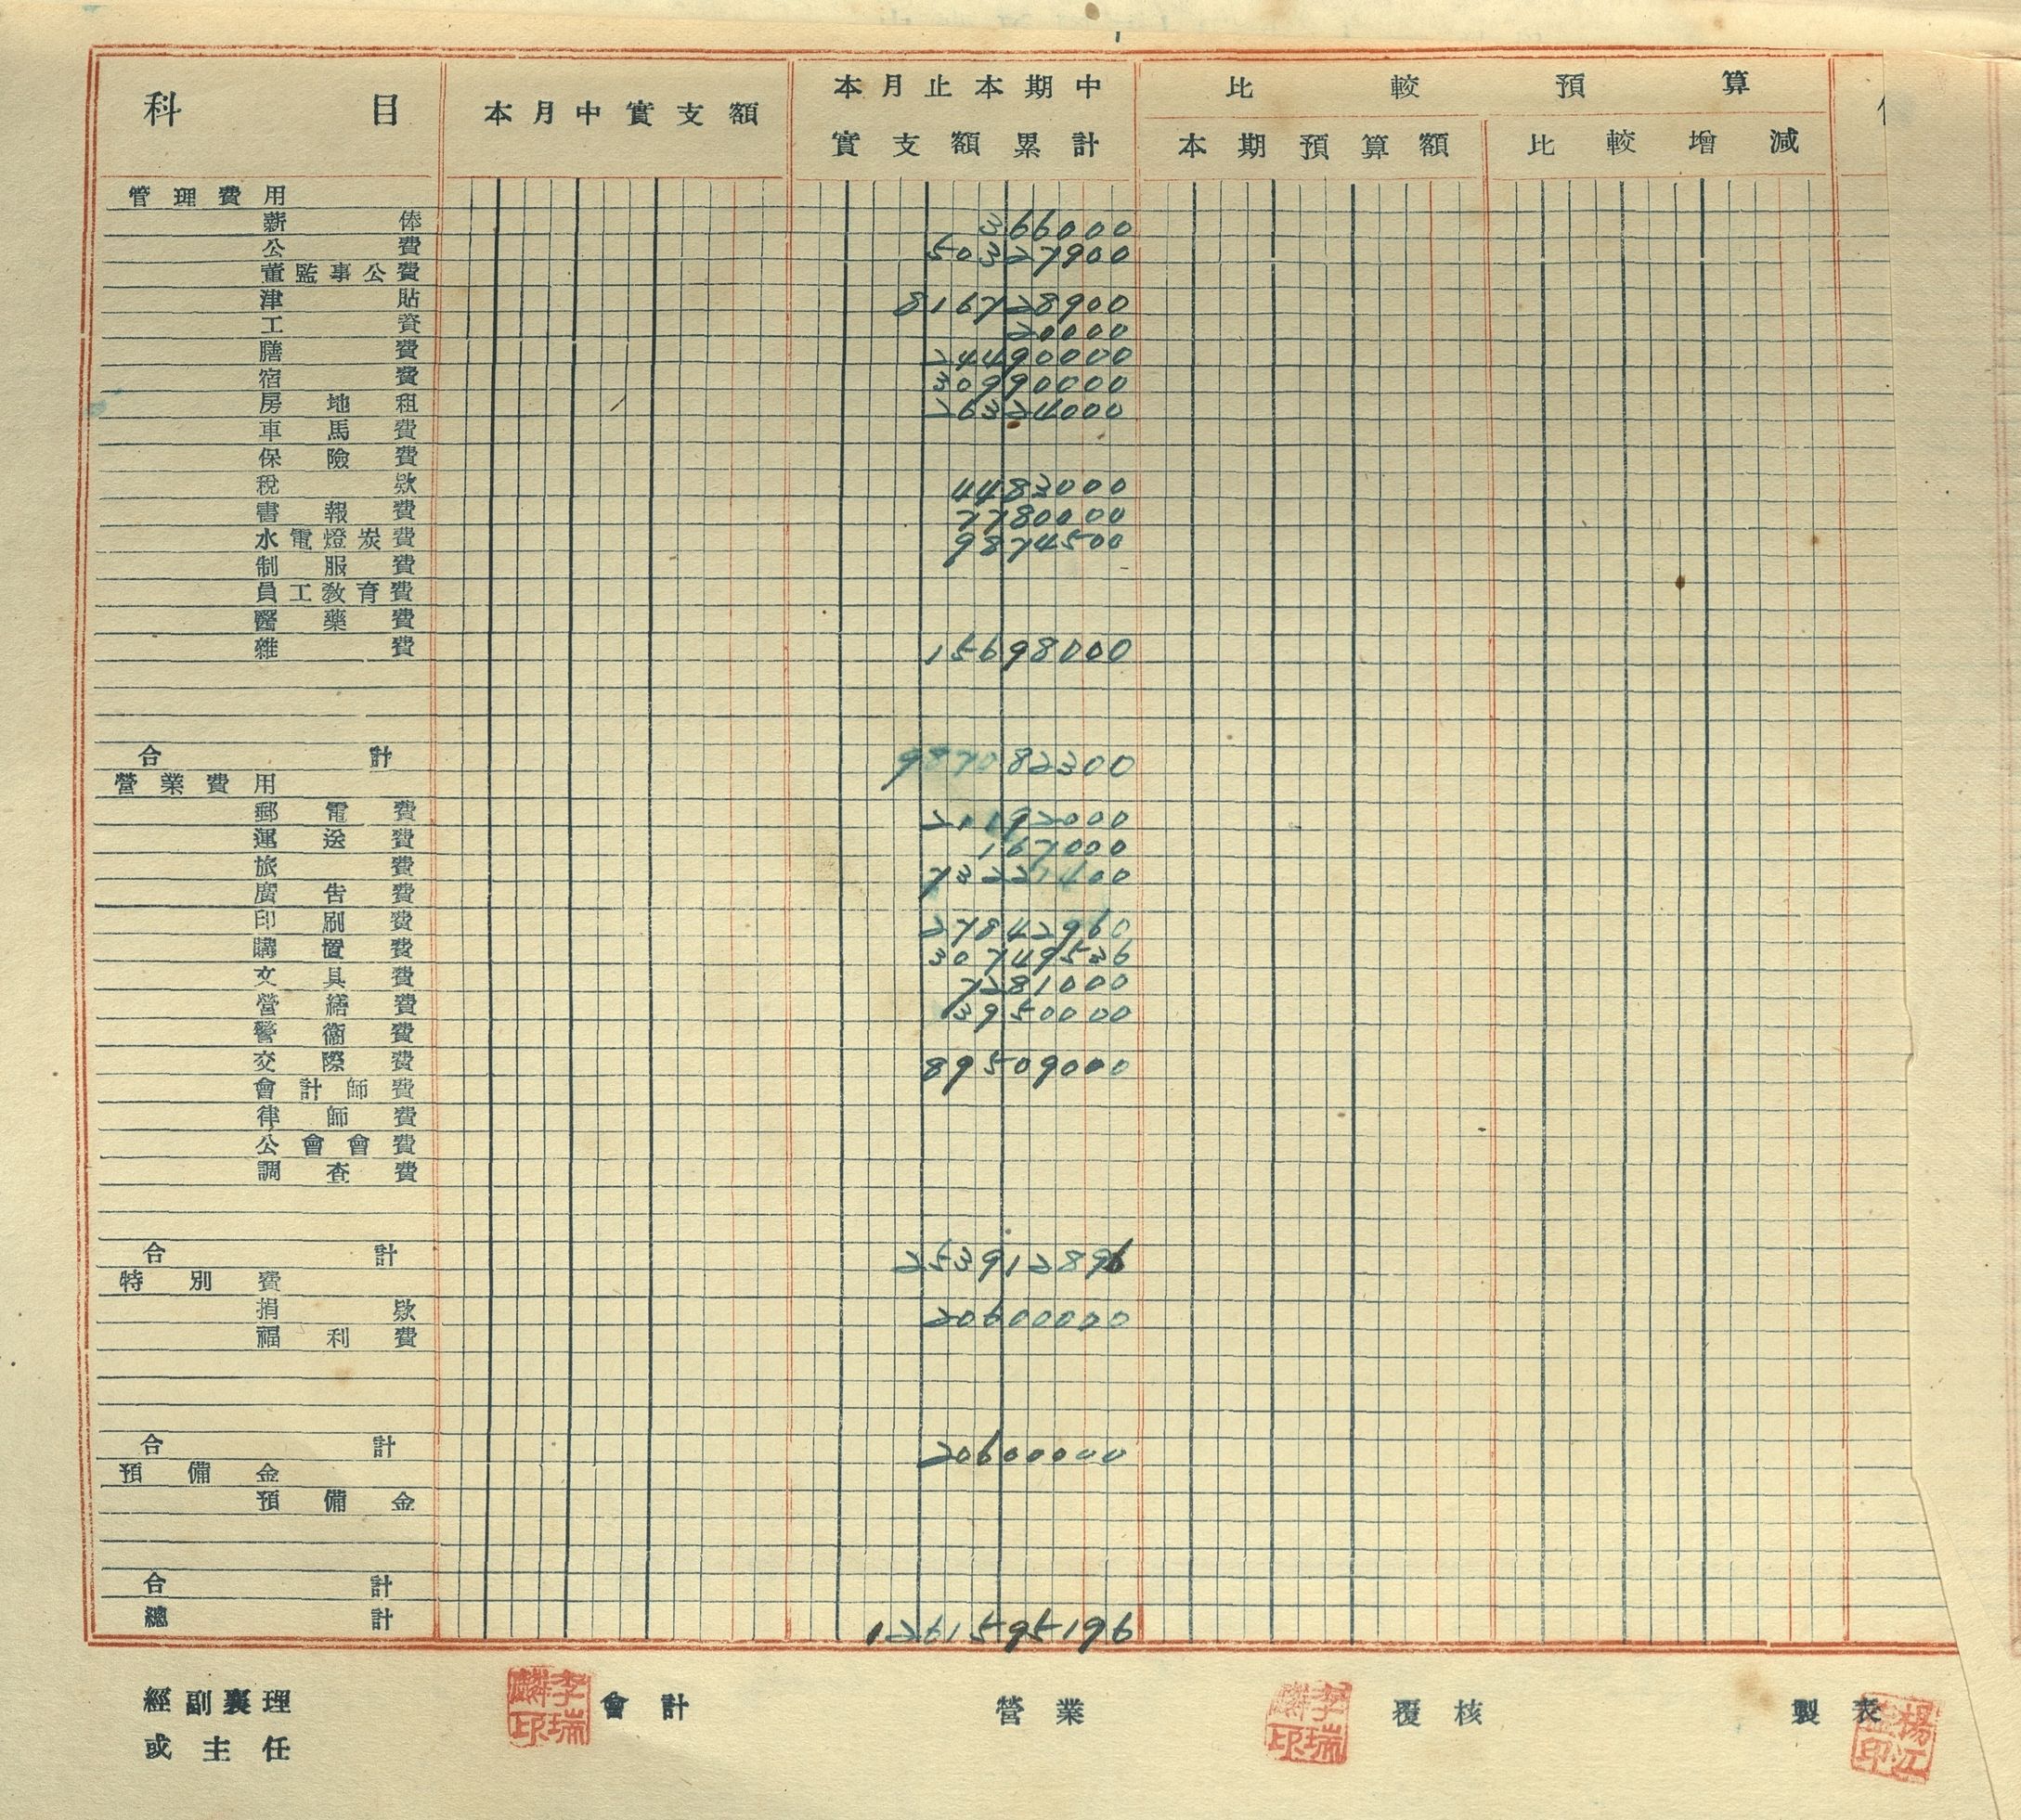 科目 本月中實支額 本月止本期中 比較預算
實支額累計 本期預算額 比較增減
管理費用
薪俸 366000
公費 50327900
董監事公費
津貼 816728900
工資 20000
膳費 24490000
宿費 30990000
房地租 26324000
車馬費
保險費
稅款 4483000
書報費 7780000
水電燈炭費 9874500
制服費
員工教育費
醫藥費
雜費 15698000
合計 987082300
營業費用
郵電費 21192000
運送費 167000
旅費 73221400
廣告費
印刷費 27842960
購置費 30749536
文具費 7281000
營繕費 3950000
警衞費
交際費 89509000
會計師費
律師費
公會會費
調查費
合計 253912896
特別費
捐款 20600000
福利費
合計 20600000
預備金
預備金
合計
總計 1261595196
經副襄理 李瑞麟印 會計 營業 李瑞麟印 覆核 製表
或主任